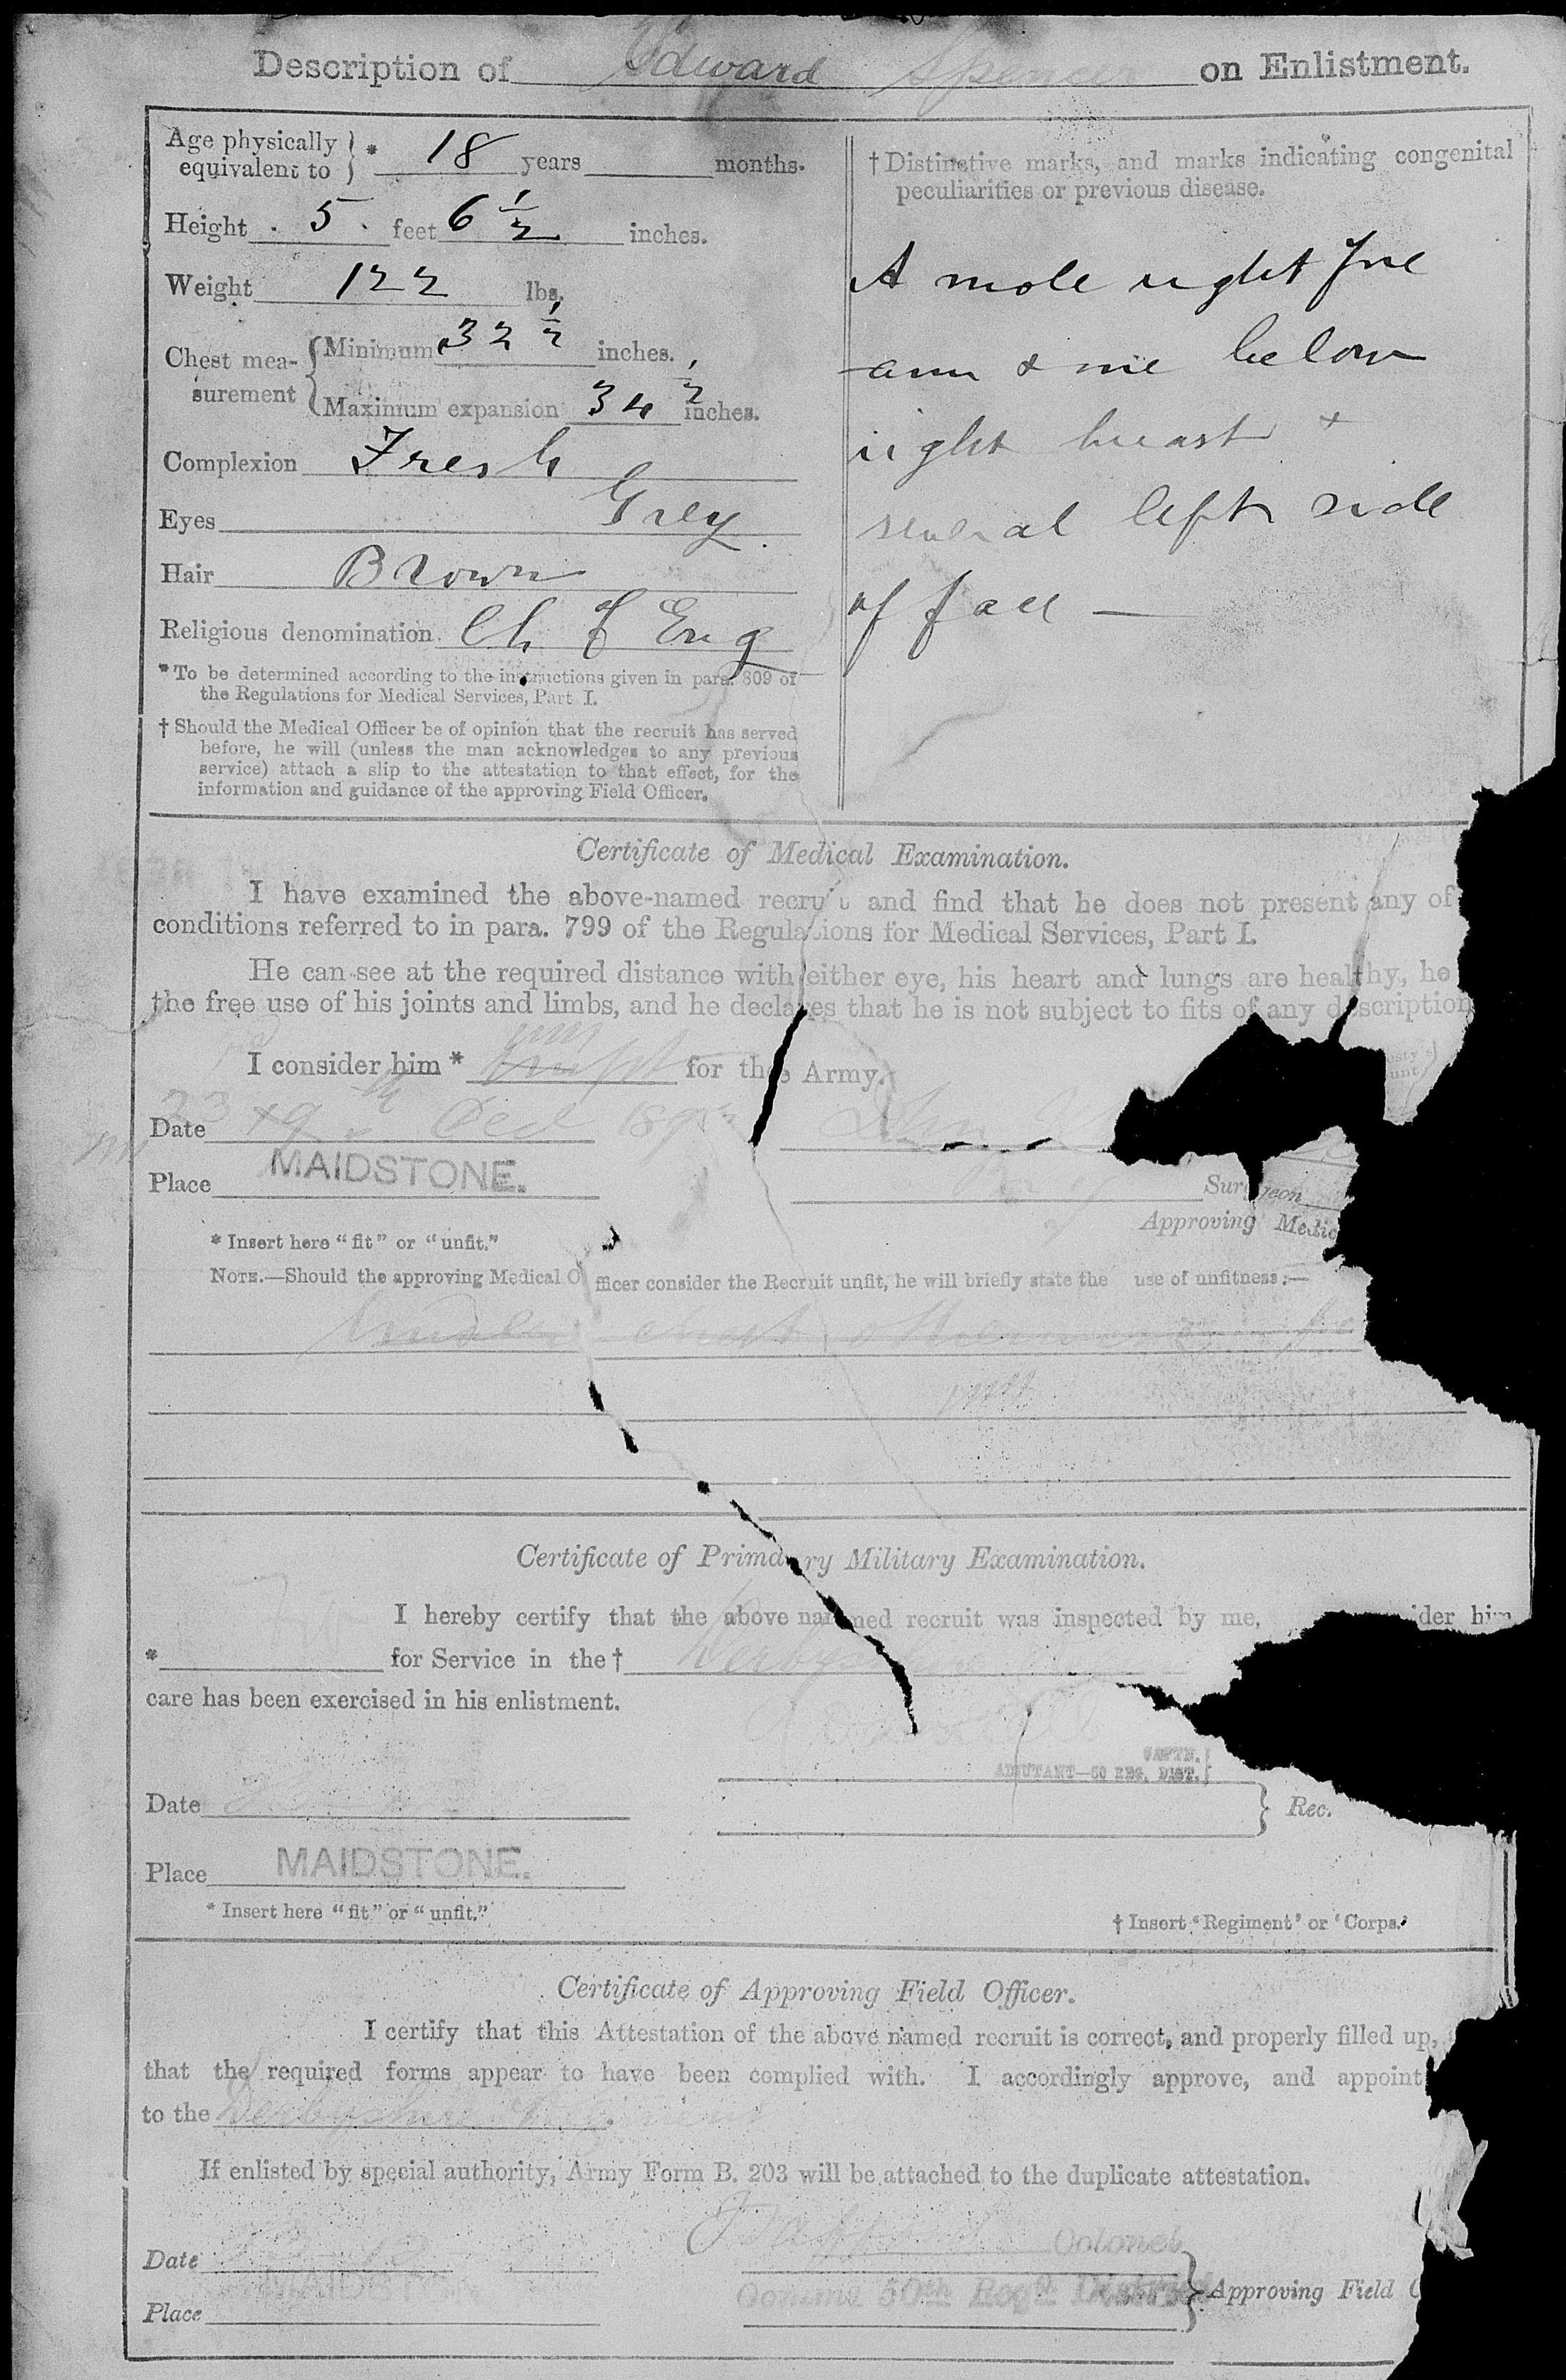 Description of Edward Spencer on Enlistment.
Age physically equivalent to } * 18 years months.
Height 5 feet 6 1/2 inches.
Weight 122 lbs.
Chest measurement { Minimum 32 1/2 inches.
Maximum expansion 34 1/2 inches.
Complexion Fresh
Eyes Grey
Hair Brown
Religious denomination Ch of Eng
* To be determined according to the instructions given in para. 809 of
the Regulations for Medical Services, Part I.
† Should the Medical Officer be of opinion that the recruit has served
before, he will (unless the man acknowledges to any previous
service) attach a slip to the attestation to that effect, for the
information and guidance of the approving Field Officer.
† Distinctive marks, and marks indicating congenital
peculiarities or previous disease.
A mole right fore
arm & one below
right breast +
several left side
of face —
Certificate of Medical Examination.
I have examined the above-named recruit and find that he does not present any of
conditions referred to in para. 799 of the Regulations for Medical Services, Part I.
He can see at the required distance with either eye, his heart and lungs are healthy, he
the free use of his joints and limbs, and he declares that he is not subject to fits of any description
I consider him * unfit for the Army.
Date 23 19th Dec
Place MAIDSTONE.
Surgeon
Approving Medic
* Insert here "fit" or "unfit."
NOTE.—Should the approving Medical Officer consider the Recruit unfit, he will briefly state the use of unfitness:—
Under chest
Certificate of Primary Military Examination.
I hereby certify that the above named recruit was inspected by me, ider him
* for Service in the † Derbyshire
care has been exercised in his enlistment.
CAPTN.
ADJUTANT—50 REG. DIST.
Date
Rec.
Place MAIDSTONE.
* Insert here "fit" or "unfit."
† Insert 'Regiment' or 'Corps.'
Certificate of Approving Field Officer.
I certify that this Attestation of the above named recruit is correct, and properly filled up,
that the required forms appear to have been complied with. I accordingly approve, and appoint
to the Derbyshire
If enlisted by special authority, Army Form B. 203 will be attached to the duplicate attestation.
Colonel
Date 12
Comms 50th Regtl District
Approving Field
Place MAIDS